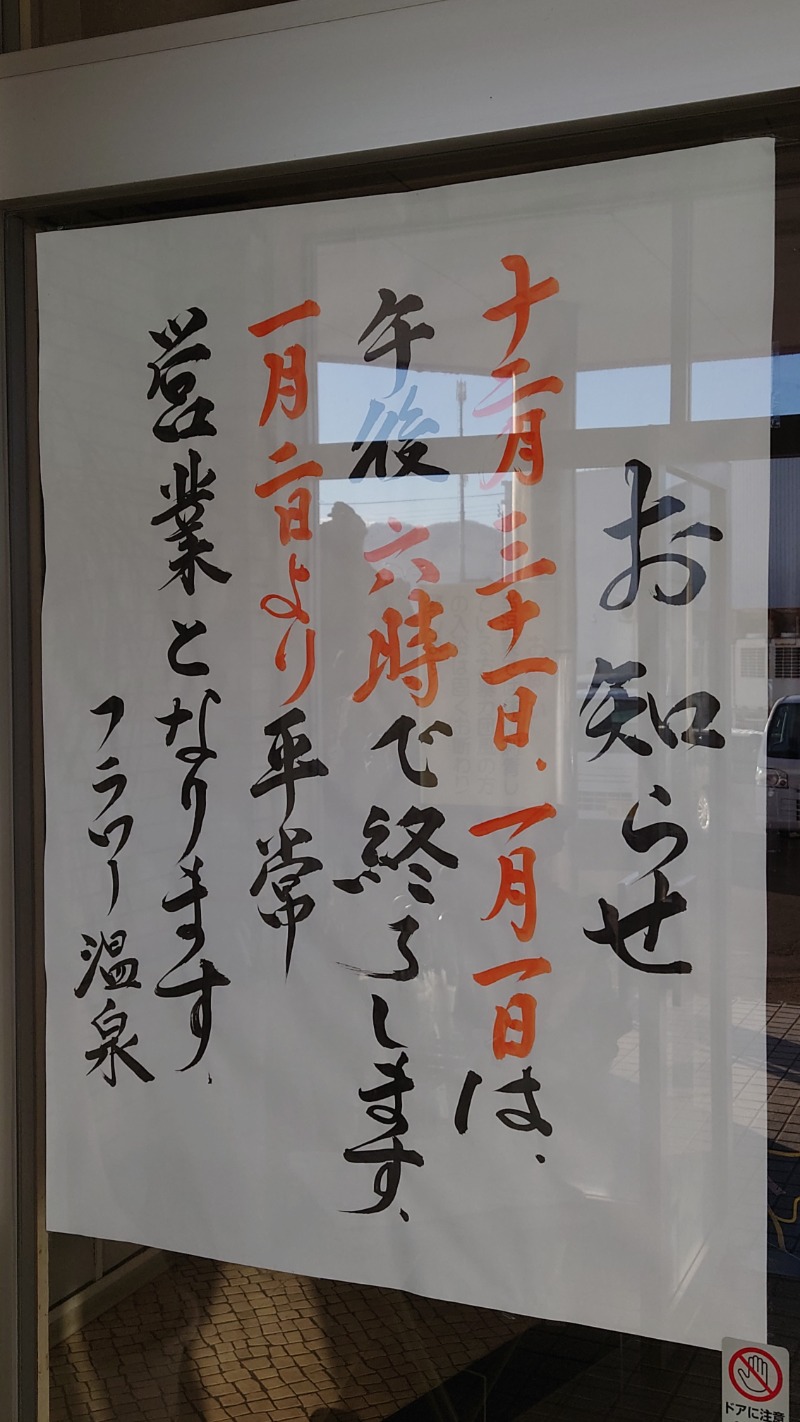 お知らせ
十二月三十一日、一月一日は、
午後六時で終了します、
一月二日より平常
営業となります、
フラワー温泉
ドアに注意